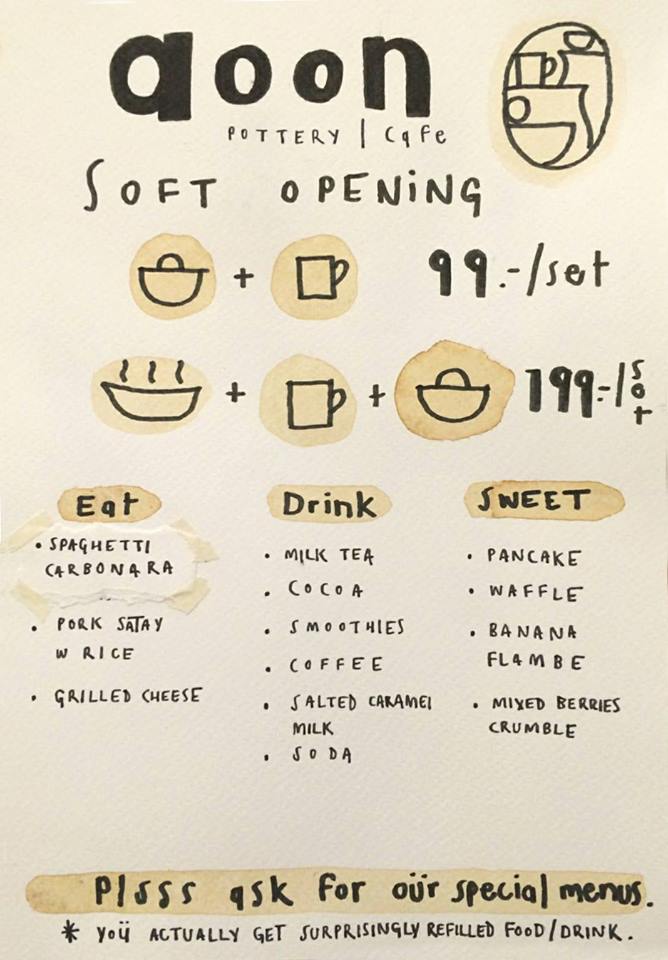 aoon
POTTERY | Cafe
SOFT OPENING
+ 99.-/set
+ + 199.-/set
Eat
• SPAGHETTI
CARBONARA
• PORK SATAY
W RICE
• GRILLED CHEESE
Drink
• MILK TEA
• COCOA
• SMOOTHIES
• COFFEE
• SALTED CARAMEL
MILK
• SODA
SWEET
• PANCAKE
• WAFFLE
• BANANA
FLAMBE
• MIXED BERRIES
CRUMBLE
Plsss ask for oür special menus.
* YOÜ ACTUALLY GET SURPRISINGLY REFILLED FOOD/DRINK.